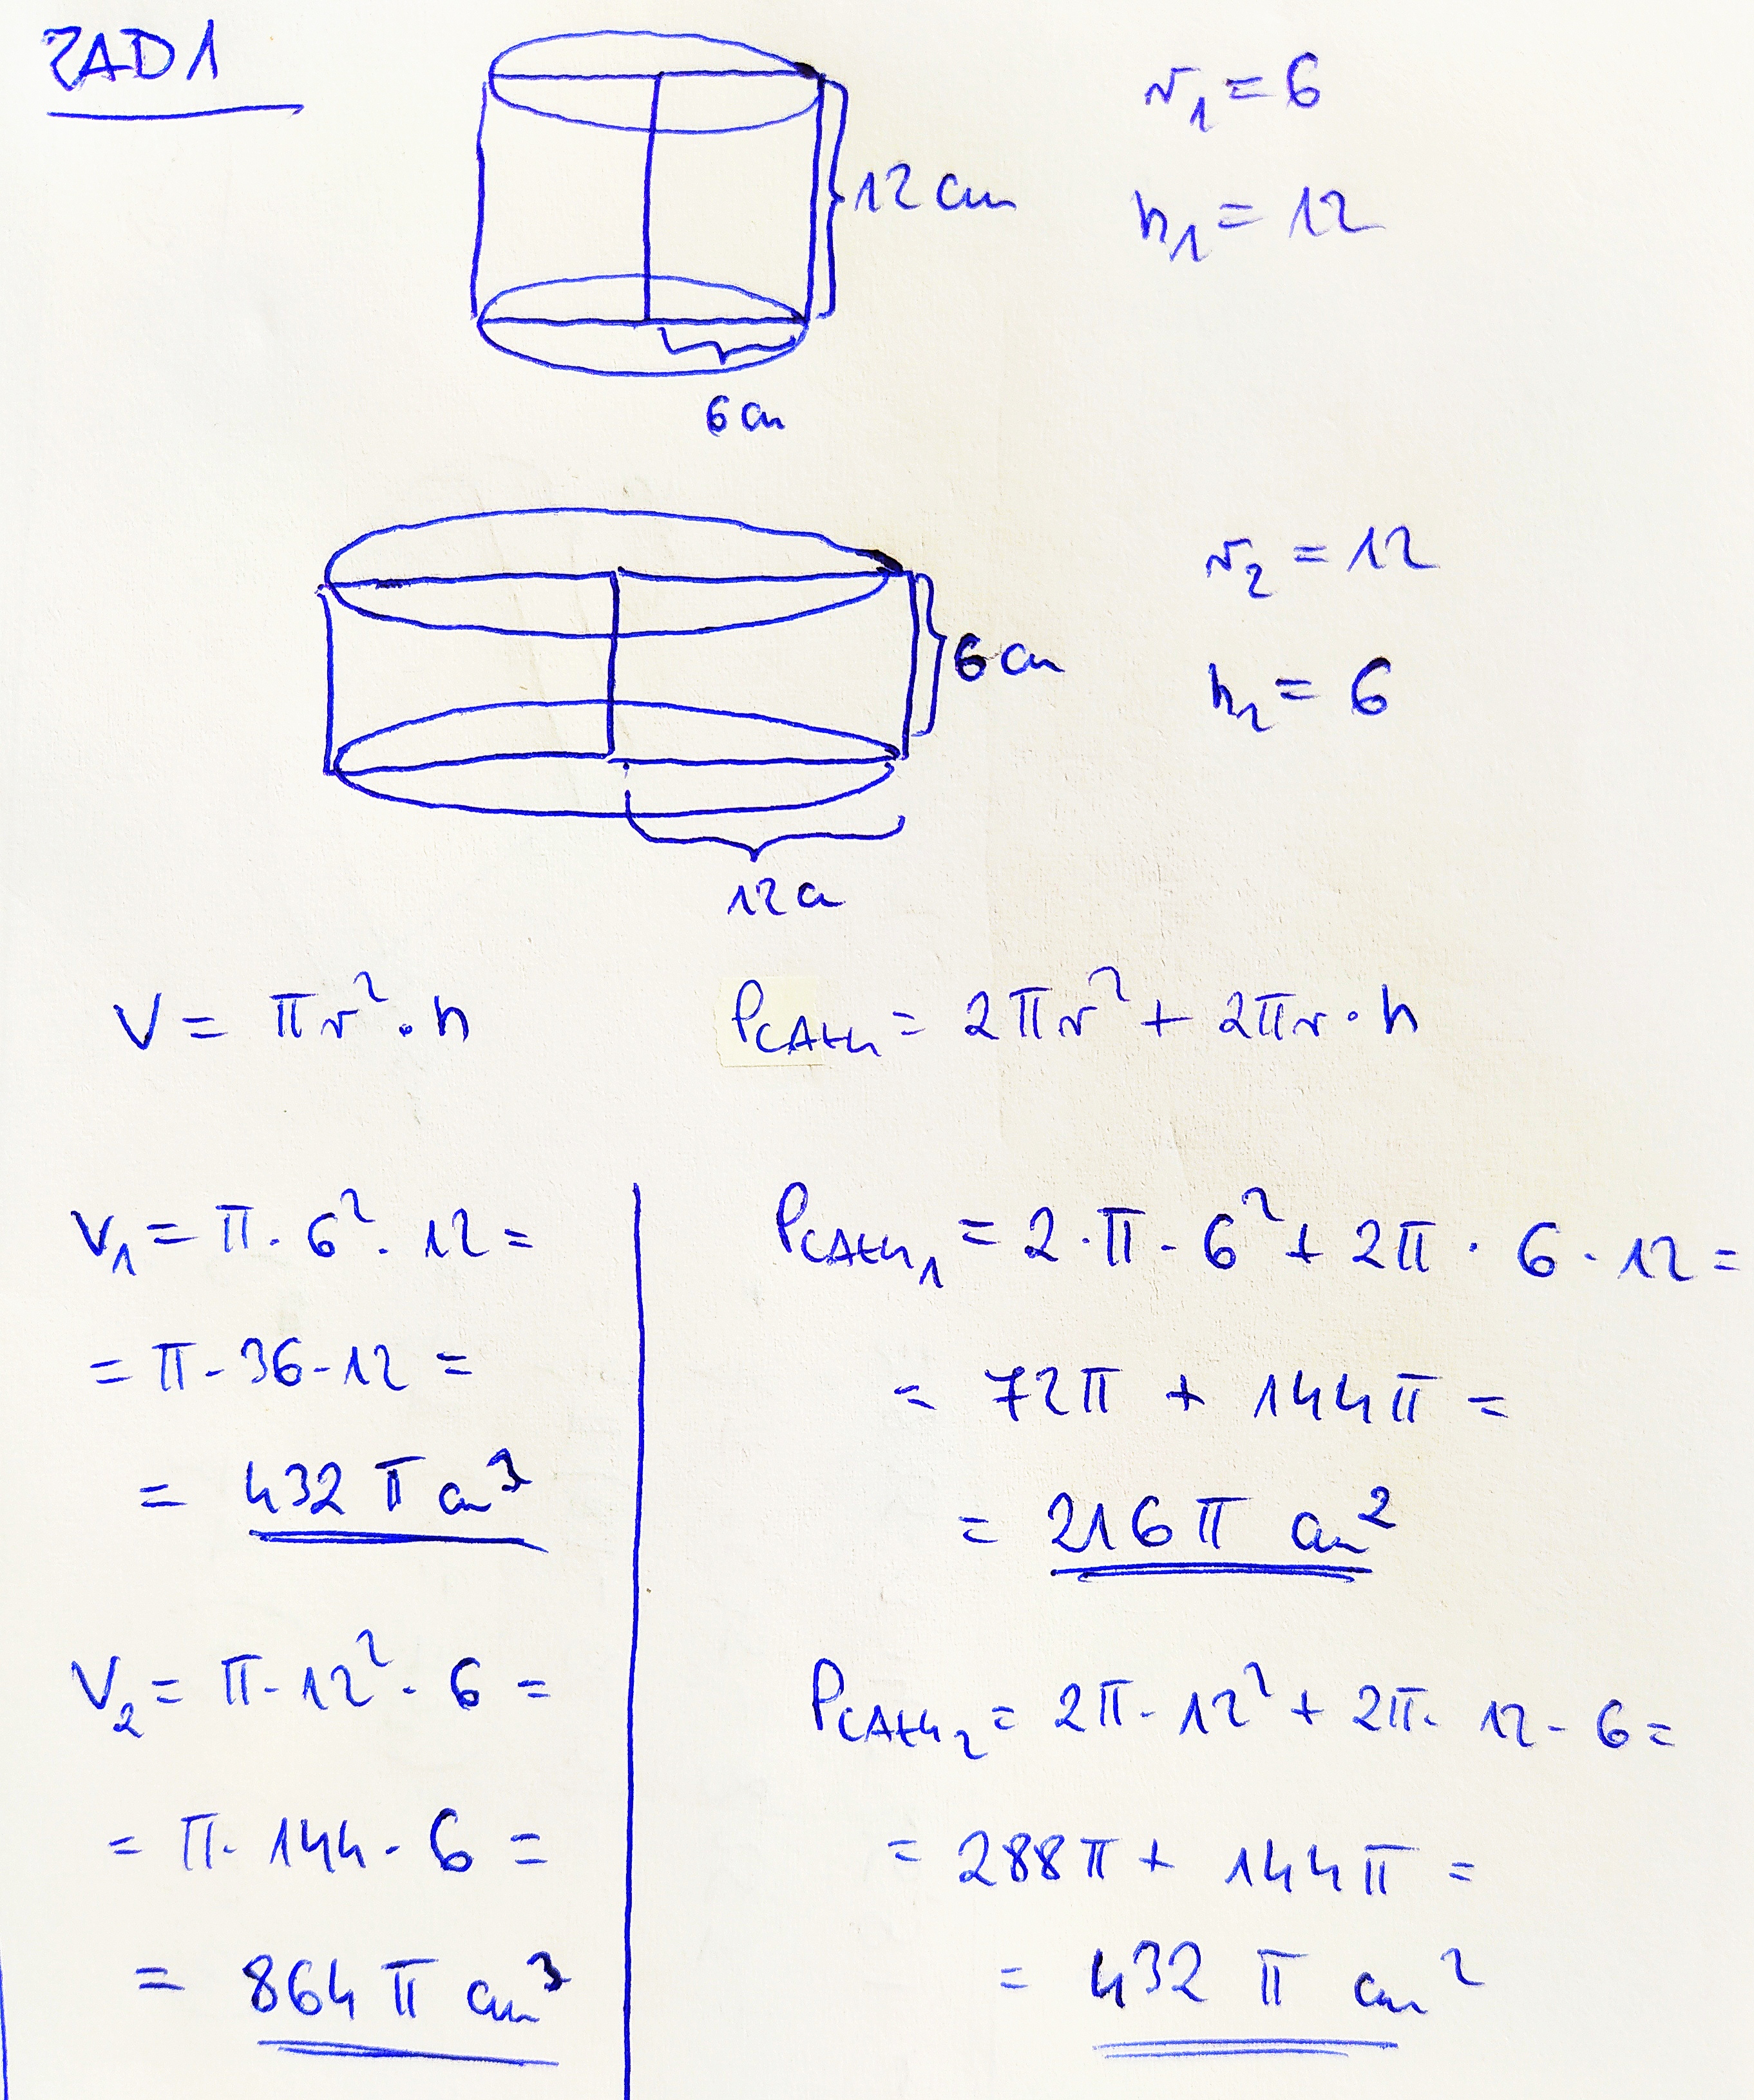 ZAD1
r₁ = 6
12 cm
h₁ = 12
6 cm
r₂ = 12
6 cm
h₂ = 6
12 cm
V = πr²·h
Pcałk = 2πr² + 2πr·h
V₁ = π · 6² · 12 =
= π · 36 · 12 =
= 432 π cm³
V₂ = π · 12² · 6 =
= π · 144 · 6 =
= 864 π cm³
Pcałk₁ = 2·π · 6² + 2π · 6 · 12 =
= 72π + 144π =
= 216π cm²
Pcałk₂ = 2π · 12² + 2π · 12 · 6 =
= 288π + 144π =
= 432 π cm²